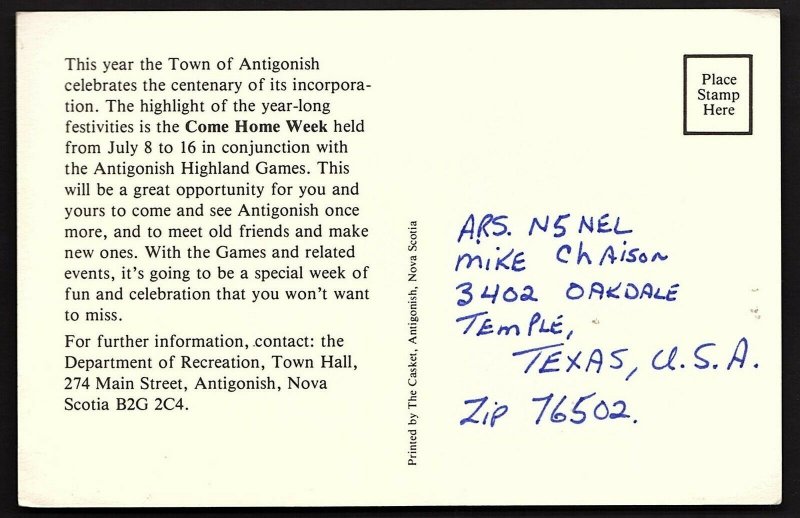 This year the Town of Antigonish
celebrates the centenary of its incorpora-
tion. The highlight of the year-long
festivities is the Come Home Week held
from July 8 to 16 in conjunction with
the Antigonish Highland Games. This
will be a great opportunity for you and
yours to come and see Antigonish once
more, and to meet old friends and make
new ones. With the Games and related
events, it's going to be a special week of
fun and celebration that you won't want
to miss.
For further information, contact: the
Department of Recreation, Town Hall,
274 Main Street, Antigonish, Nova
Scotia B2G 2C4.
Printed by The Casket, Antigonish, Nova Scotia
Place
Stamp
Here
ARS. N5NEL
MIKE ChAisoN
3402 OAKDALE
TEMPLE,
TEXAS, U.S.A.
Zip 76502.